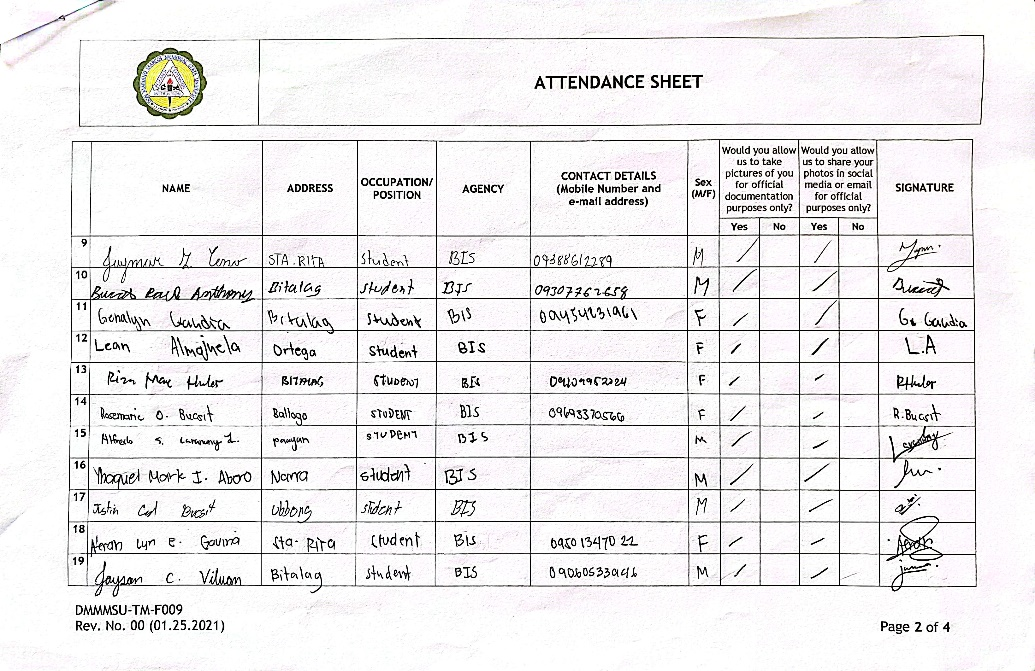 ATTENDANCE SHEET
NAME ADDRESS OCCUPATION/ POSITION AGENCY CONTACT DETAILS (Mobile Number and e-mail address) Sex (M/F) Would you allow us to take pictures of you for official documentation purposes only? Would you allow us to share your photos in social media or email for official purposes only? SIGNATURE
Yes No Yes No
9 STA. RITA student BIS 09388612289 M
10 Bucsit Anthony Bitalag student BIS 09307762658 M Bucsit
11 Genalyn Gaudia Bitalag student BIS F G. Gaudia
12 Lean Almojuela Ortega student BIS F L.A
13 Riza Mae Huler BITALAG STUDENT BIS F RHuler
14 Rosemarie O. Bucsit Ballogo STUDENT BIS 09693370566 F R.Bucsit
15 Alfredo S. STUDENT BIS M
16 Mark I. Aboro Namra student BIS M
17 Justin Bucsit Ubbong student BIS M
18 Lyn E. Gavina Sta-Rita student BIS 09501347022 F
19 Jayson C. Viluan Bitalag student BIS M
DMMMSU-TM-F009
Rev. No. 00 (01.25.2021)
Page 2 of 4